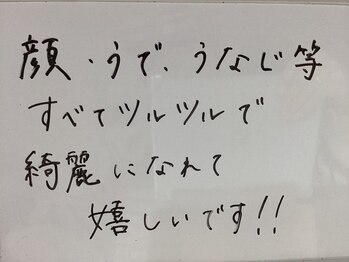 顔・うで、うなじ等
すべてツルツルで
綺麗になれて
嬉しいです!!